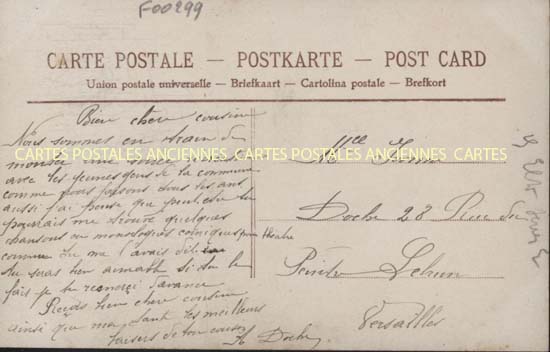 F00299
CARTE POSTALE — POSTKARTE — POST CARD
Union postale universelle — Briefkaart — Cartolina postale — Brefkort
Bien chere cousine
Nous sommes en train de
monter une
avec les jeunes gens de la commune
comme nous faisons tous les ans
aussi j'ai pensé que peut être tu
pourrais me trouver quelques
chansons ou monologues comiques pour théatre
comme tu me l'avais dit
tu seras bien aimable si tu le
fait je te remerci d'avance
Reçois bien chere cousine
ainsi que ma tante les meilleurs
baisers de ton cousin
Doche
CARTES POSTALES ANCIENNES CARTES POSTALES ANCIENNES CARTES
Mlle
Doche 28 Rue du
Peintre Lebrun
Versailles